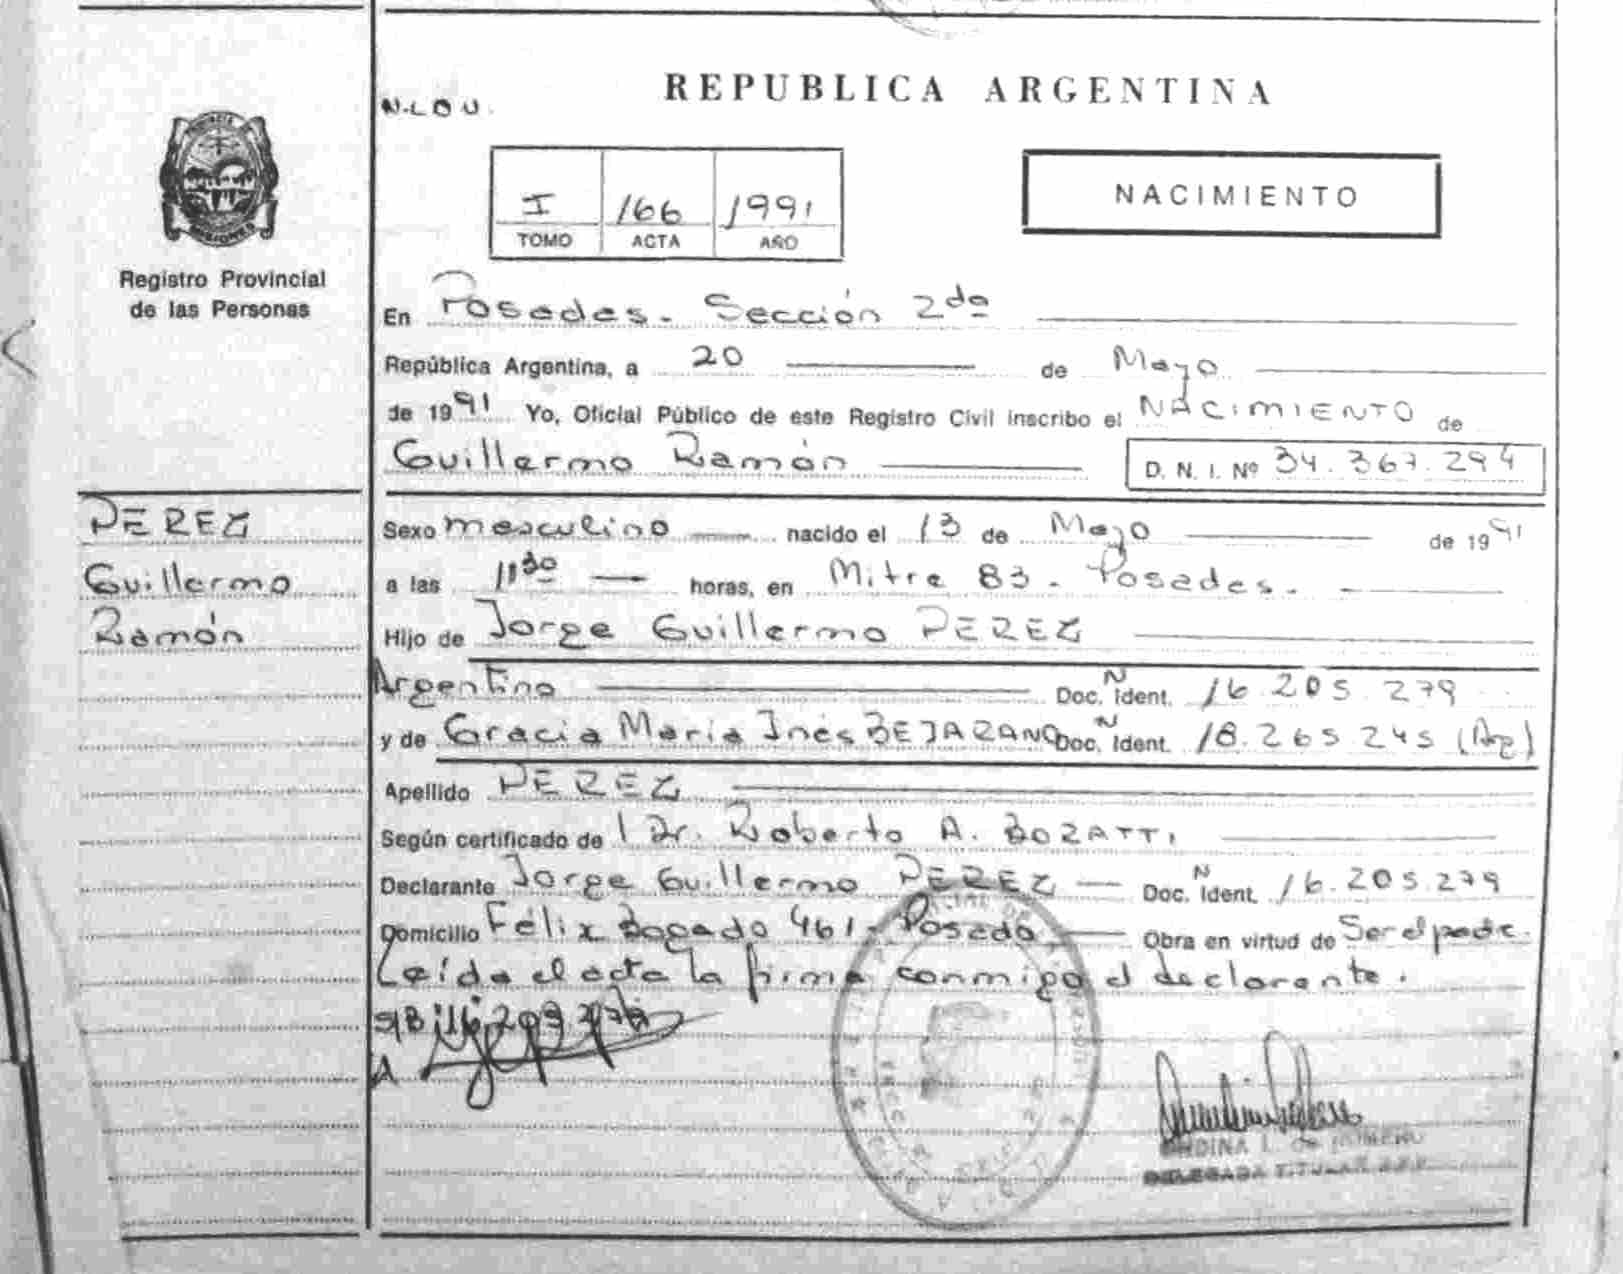 REPUBLICA ARGENTINA
N.L O U.
PROVINCIA
MISIONES
Registro Provincial
de las Personas
I 166 1991
TOMO ACTA AÑO
NACIMIENTO
En Posadas. Sección 2da
República Argentina, a 20 de Mayo
de 1991 Yo, Oficial Público de este Registro Civil inscribo el NACIMIENTO de
Guillermo Ramón D. N. I. Nº 34.367.294
PEREZ
Guillermo
Ramón
Sexo masculino nacido el 13 de Mayo de 1991
a las 11 30 horas, en Mitre 83 - Posadas.
Hijo de Jorge Guillermo PEREZ
Argentino Doc. N Ident. 16.205.279
y de Gracia Maria Inés BEJARANO Doc. N Ident. 18.265.245 (Arg)
Apellido PEREZ
Según certificado de l Dr. Roberto A. BOZATTI
Declarante Jorge Guillermo PEREZ Doc. N Ident. 16.205.279
Domicilio Félix Bogado 461 - Posadas Obra en virtud de Ser el padre.
Leída el acta la firma conmigo el declarante.
L. de ROMERO
DELEGADA TITULAR